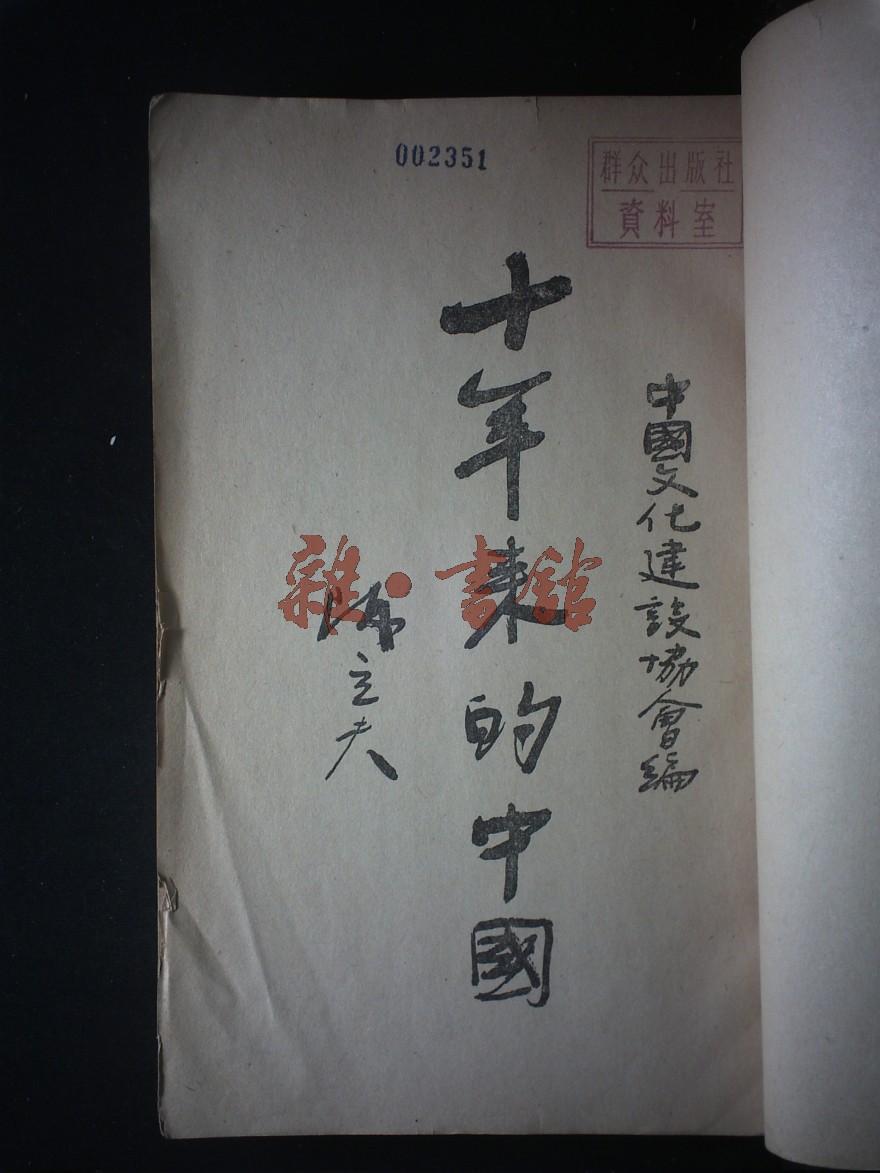 002351
群众出版社
資料室
中國文化建設協會編
十年来的中國
陳立夫
雜·書館